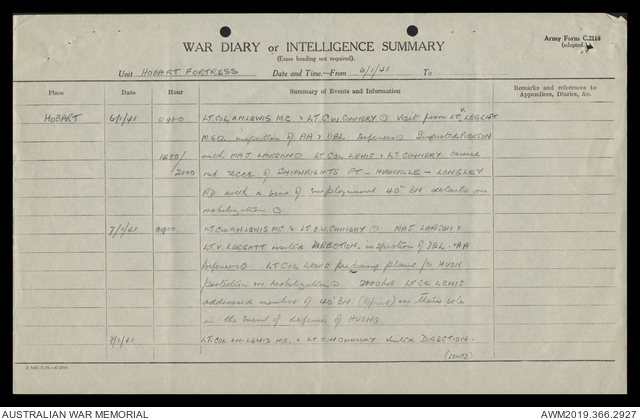 Army Form C.2118
(adapted.)
WAR DIARY or INTELLIGENCE SUMMARY
(Erase heading not required).
Unit HOBART FORTRESS Date and Time.—From 6/1/41 To
Place Date Hour Summary of Events and Information Remarks and references to Appendices, Diaries, &c.
HOBART 6/1/41 0900 LT. COL. A.N. LEWIS M.C. & LT C.W. CONMERY Visit from LT. V. LEGGATT
inspection of AA & DEL Defences Inspected
1400/ with MAJ LANSON LT COL LEWIS & LT CONMERY carried
2000 out recce of SHIPWRIGHTS PT – HUONVILLE – LONGLEY
RD. with a view of employment 40 BN details on
mobilization
7/1/41 0900 LT. COL AN LEWIS MC & LT C W. CONMERY MAJ LANSON &
LT. V. LEGGATT under DIRECTION – inspection of DEL – AA
Defences LT COL LEWIS preparing plans for HUON
protection on mobilization 2000 hrs LT COL LEWIS
addressed members of 40 BN in their role
in the event of defence of HUON
8/1/41 LT. COL A.N. LEWIS MC. & LT C.W CONMERY under DIRECTION.
AUSTRALIAN WAR MEMORIAL
AWM2019.366.2927